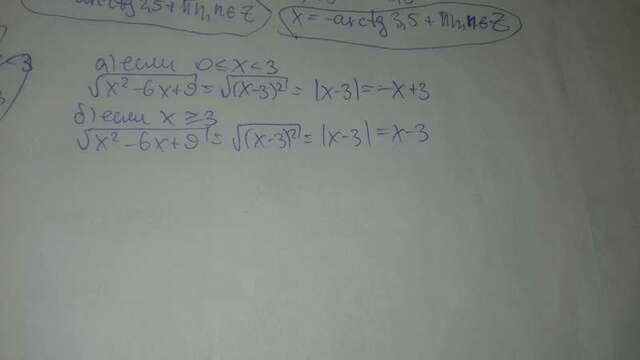 -arctg 3,5 + πn, n∈Z
x = -arctg 3,5 + πn, n∈Z
<3
а) если 0 < x < 3
√x² - 6x + 9 = √(x-3)² = |x-3| = -x+3
б) если x ≥ 3
√x² - 6x + 9 = √(x-3)² = |x-3| = x-3